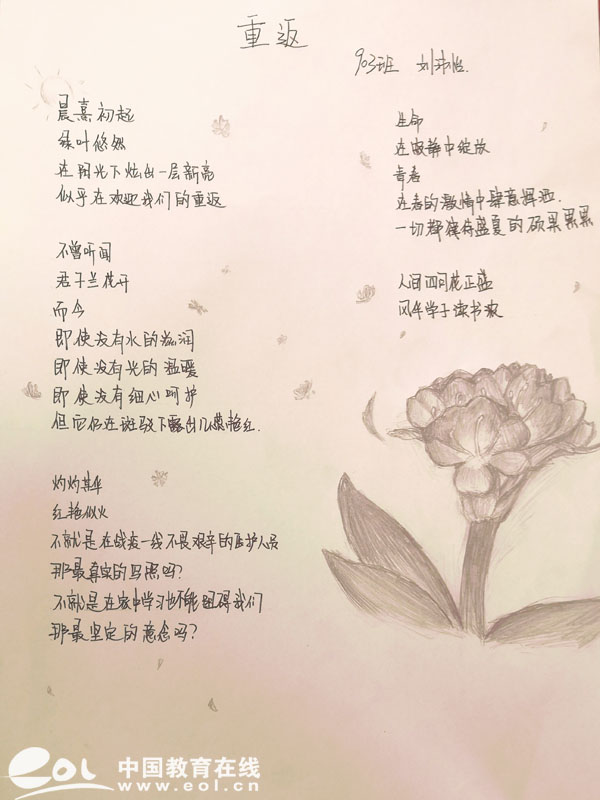 重返
903班 刘玮怡
晨熹初起
绿叶悠然
在阳光下炫出一层新亮
似乎在欢迎我们的重返
不曾听闻
君子兰花开
而今
即使没有水的滋润
即使没有光的温暖
即使没有细心呵护
但它仍在斑驳下露出几簇艳红.
灼灼其华
红艳似火
不就是在战疫一线不畏艰辛的医护人员
那最真实的写照吗?
不就是在家中学习也不能阻碍我们
那最坚定的意念吗?
生命
在寂静中绽放
青春
在春的激情中肆意挥洒.
一切都演待盛夏的硕果累累
人间四月花正盛
风华学子读书浓
eol 中国教育在线
www.eol.cn